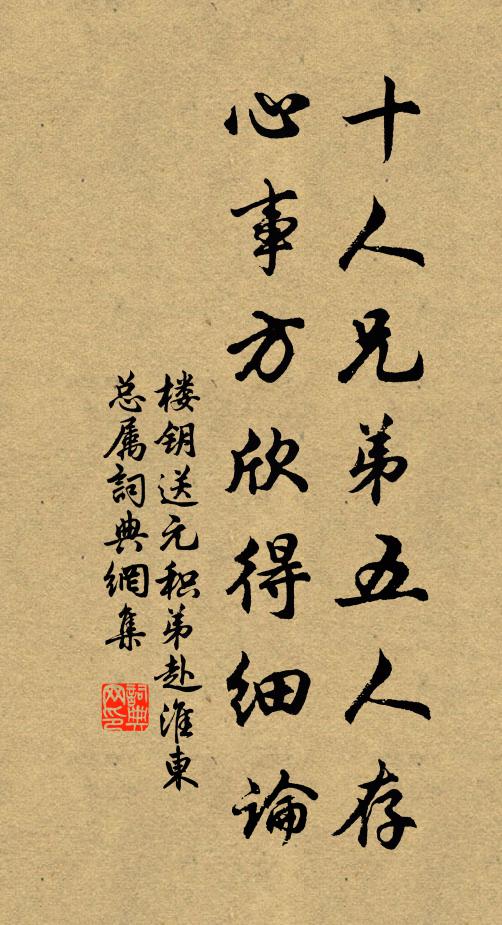 十人兄弟五人存
心事方欣得细論
楼钥送元积弟赴淮東
总属詞典網集
詞典网印